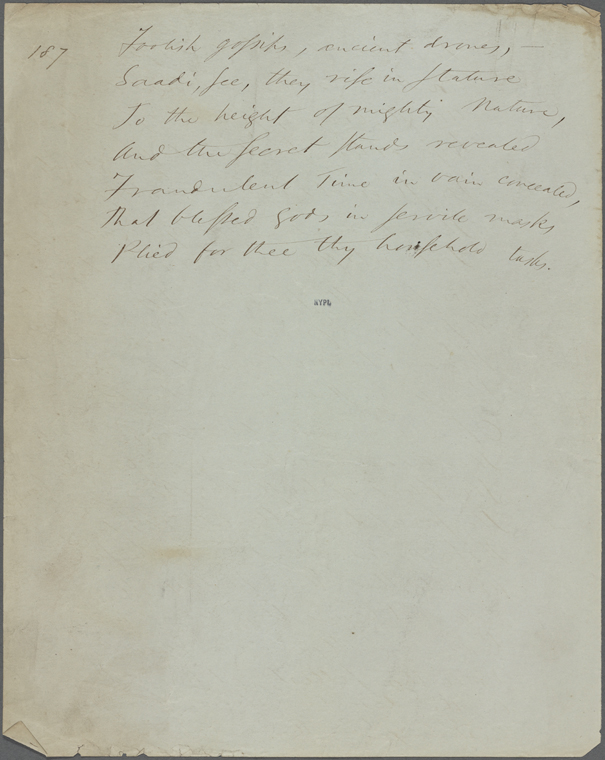 187
Foolish gossips, ancient drones, —
Saadi, see, they rise in stature
To the height of mighty Nature,
And the secret stands revealed
Fraudulent Time in vain concealed,
That blessed Gods in servile masks
Plied for thee thy household tasks.
NYPL